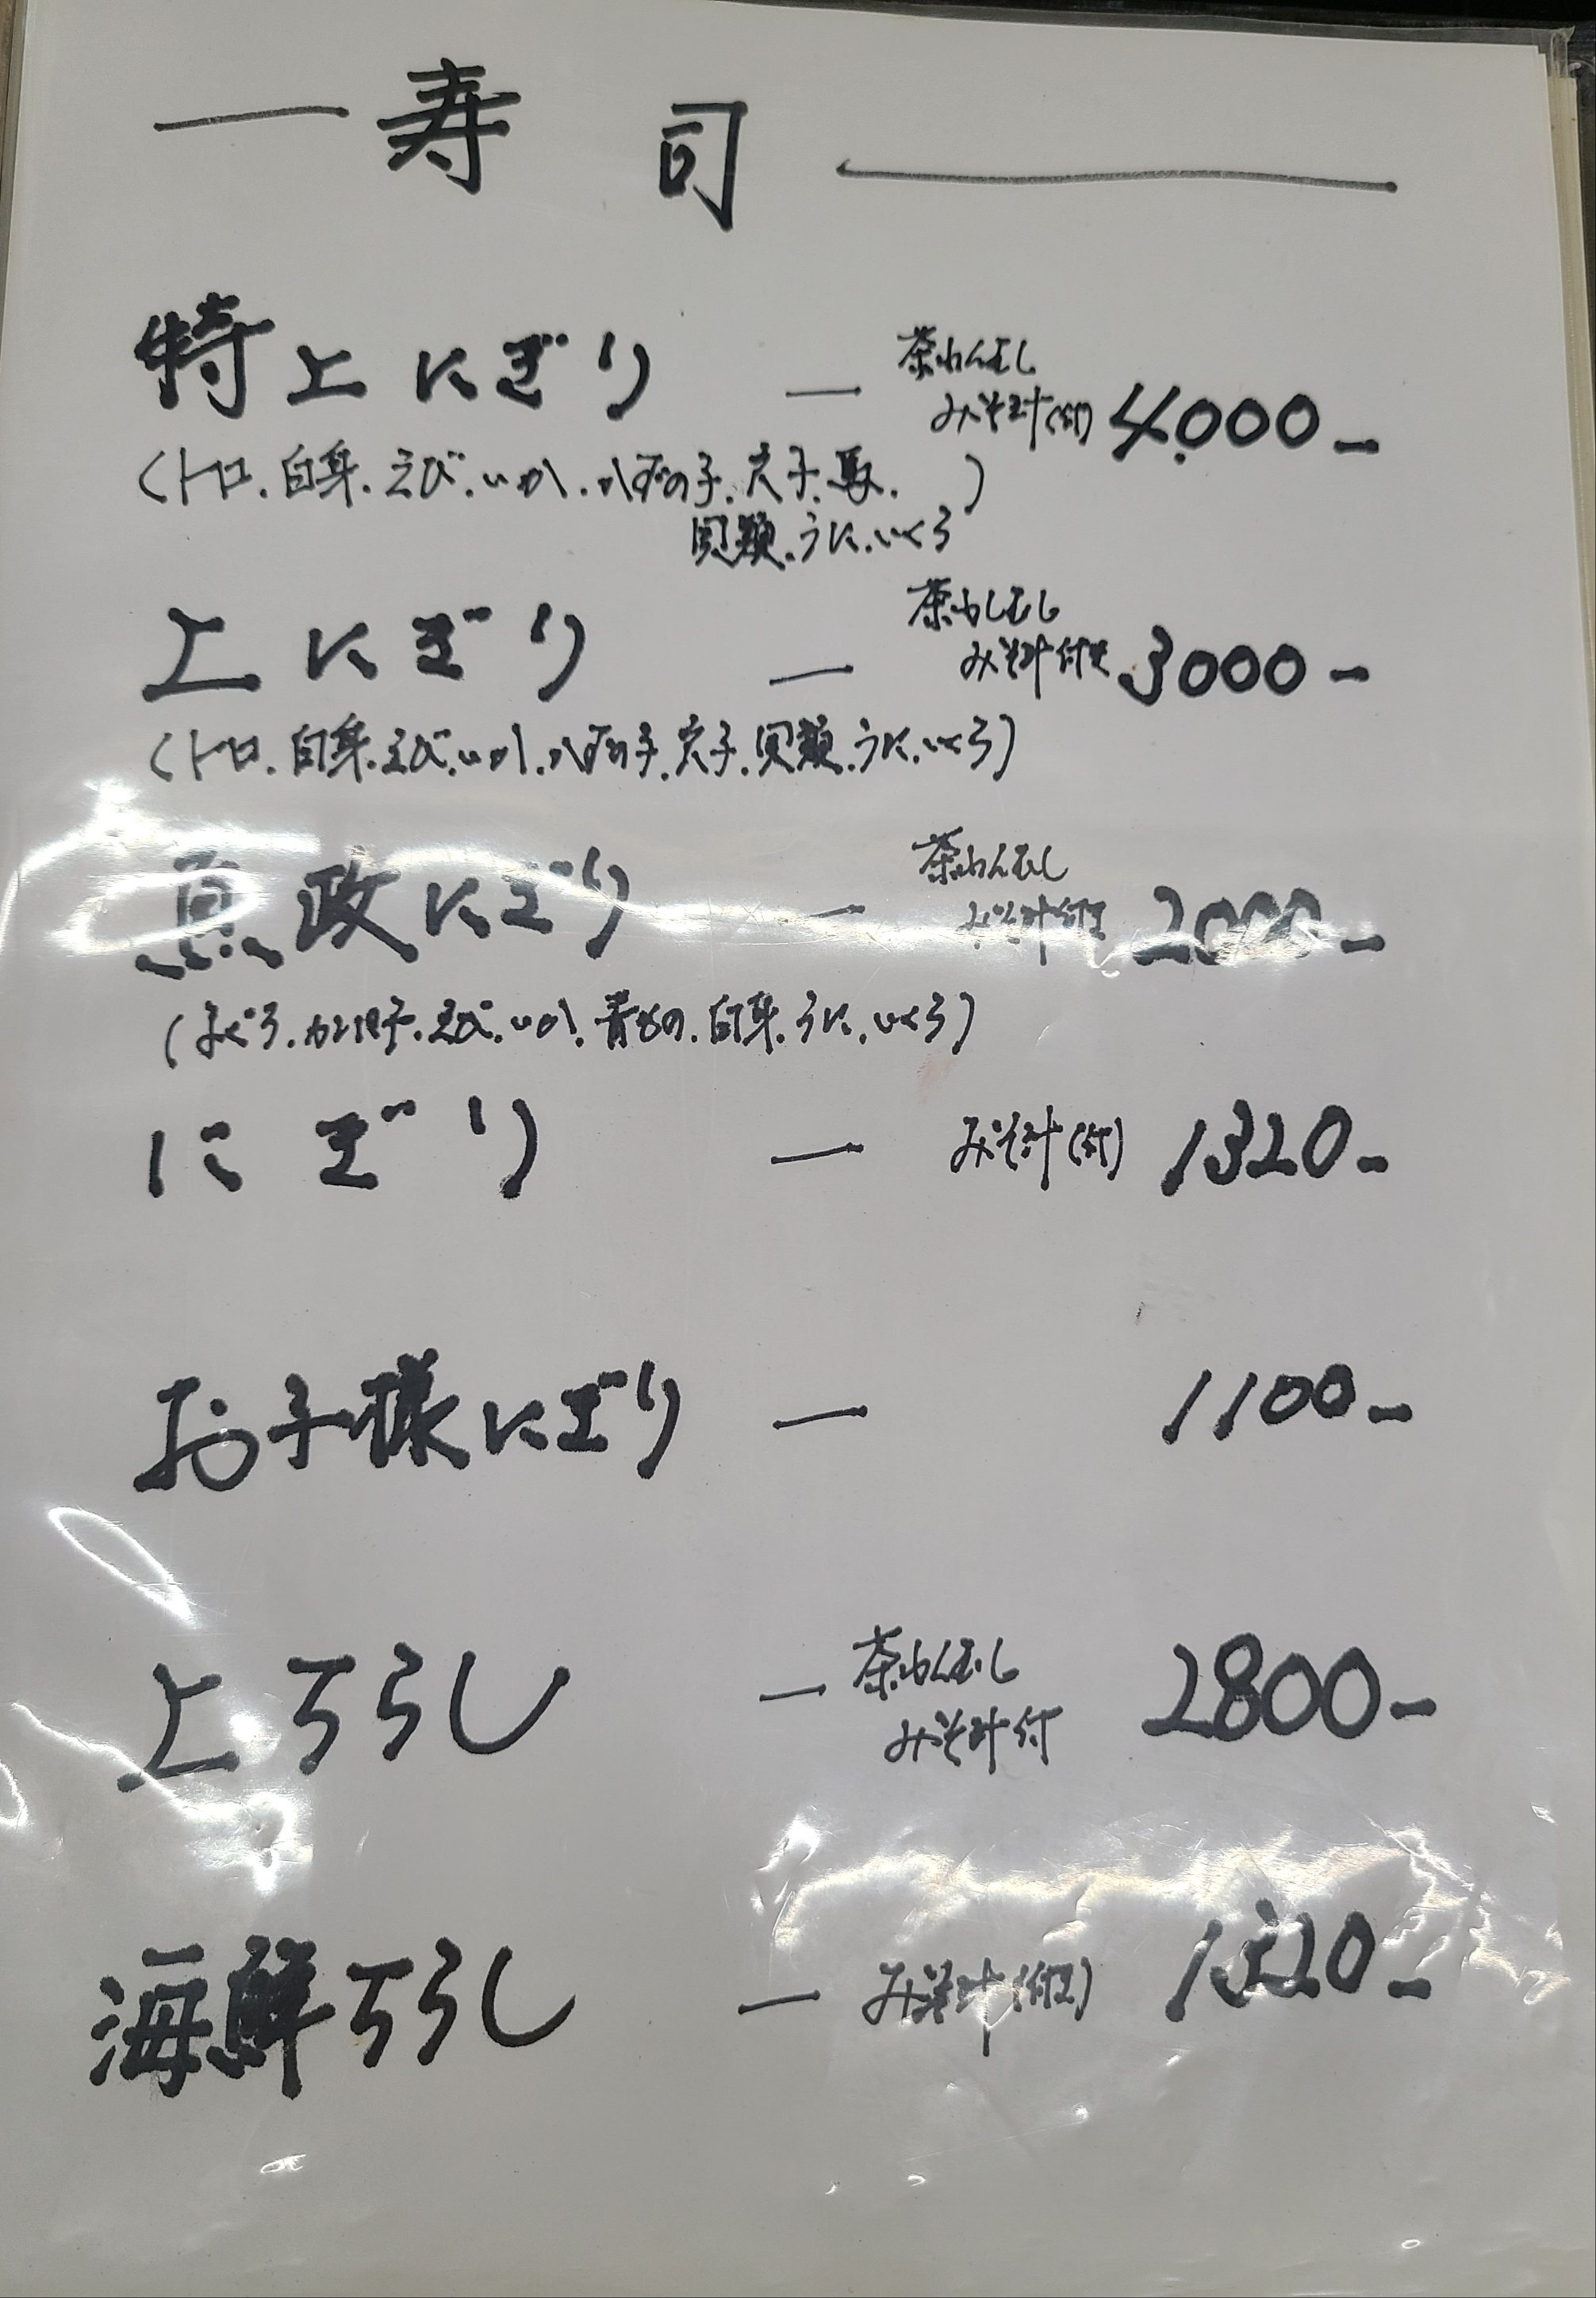 寿司
特上にぎり ー 茶わんむし
みそ汁(付) 4,000-
(トロ.白身.えび.いか.かずの子.穴子.馬.)
貝類.うに.いくら
上にぎり ー 茶わんむし
みそ汁付 3000-
(トロ.白身.えび.いか.かずの子.穴子.貝類.うに.いくら)
魚政にぎり ー 茶わんむし
みそ汁付 2000-
(まぐろ.えび.いか.青もの.白身.うに.いくら)
にぎり ー みそ汁(付) 1320-
お子様にぎり ー 1100-
上ちらし ー 茶わんむし
みそ汁付 2800-
海鮮ちらし ー みそ汁(付) 1320-